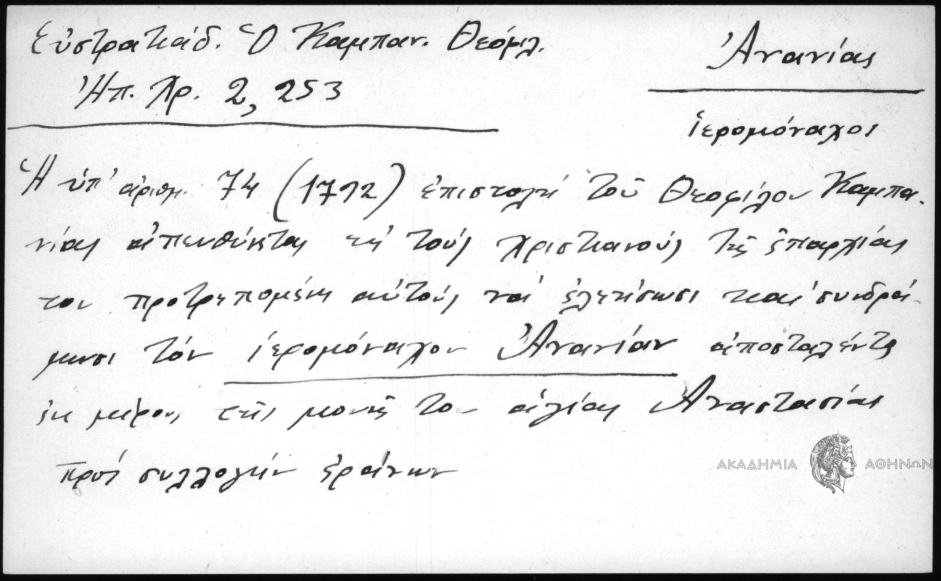 Εὐστρατιάδ. Ὁ Καμπαν. Θεόφιλ.
Ἠπ. Χρ. 2, 253
Ἀνανίας
ἱερομόναχος
Ἡ ὑπ' ἀριθμ. 74 (1792) ἐπιστολή τοῦ Θεοφίλου Καμπα-
νίας ἀπευθύνεται εἰς τούς χριστιανούς τῆς ἐπαρχίας
του προτρεπομένη αὐτούς νά ἐλεήσωσι καί συνδρά-
μωσι τόν ἱερομόναχον Ἀνανίαν ἀποσταλέντα
ἐκ μέρους τῆς μονῆς του ἁγίας Ἀναστασίας
πρός συλλογήν ἐράνων
ΑΚΑΔΗΜΙΑ ΑΘΗΝΩΝ